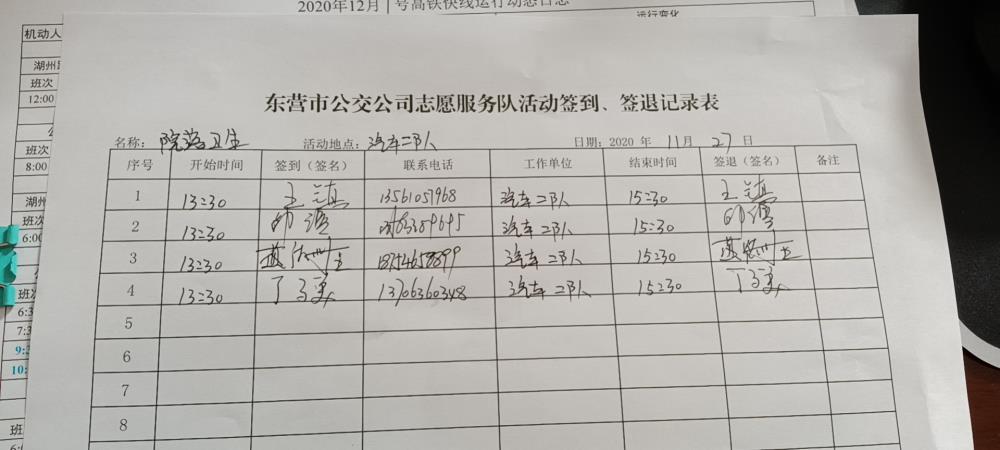 2020年12月1号高铁快线运行动态日志
运行变化
机动人
班次
12:00
8:00
湖州
班次
6:00
班次
6:3
7:3
9:
10:
班
东营市公交公司志愿服务队活动签到、签退记录表
名称：院落卫生 活动地点：汽车二队 日期：2020 年 11 月 27 日
序号 开始时间 签到（签名） 联系电话 工作单位 结束时间 签退（签名） 备注
1 13:30 王镇 13561057968 汽车二队 15:30 王镇
2 13:30 汽车二队 15:30
3 13:30 18754658899 汽车二队 15:30
4 13:30 13706360348 汽车二队 15:30
5
6
7
8